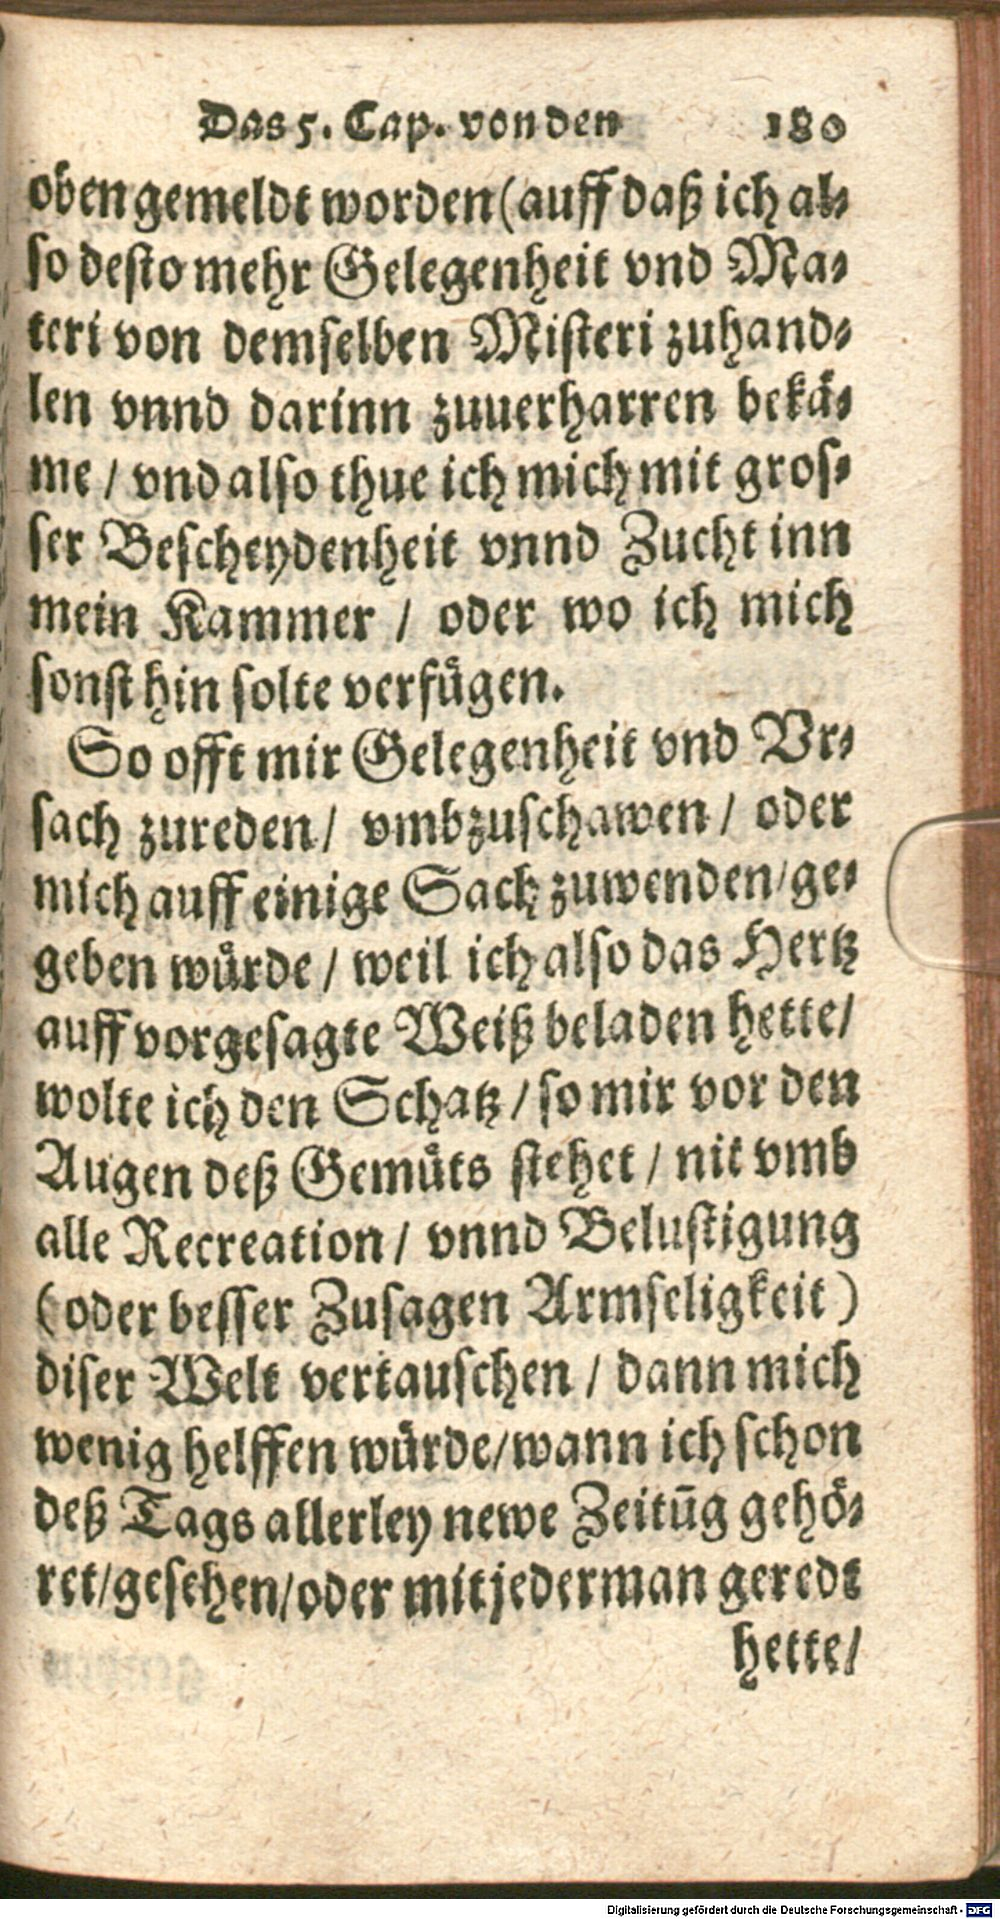 Das 5. Cap. von den 180
oben gemeldt worden (auff daß ich al⸗
so desto mehr Gelegenheit vnd Ma⸗
teri von demselben Misteri zuhand⸗
len vnnd darinn zuuerharren bekå⸗
me / vnd also thue ich mich mit gros⸗
ser Bescheydenheit vnnd Zucht inn
mein Kammer / oder wo ich mich
sonst hin solte verfuͤgen.
So offt mir Gelegenheit vnd Vr⸗
sach zureden / vmbzuschawen / oder
mich auff einige Sach zuwenden / ge⸗
geben wuͤrde / weil ich also das Hertz
auff vorgesagte Weiß beladen hette /
wolte ich den Schatz / so mir vor den
Augen deß Gemuͤts stehet / nit vmb
alle Recreation / vnnd Belustigung
(oder besser Zusagen Armseligkeit)
diser Welt vertauschen / dann mich
wenig helffen wuͤrde / wann ich schon
deß Tags allerley newe Zeitūg gehoͤ⸗
ret / gesehen / oder mit jederman geredt
hette /
Digitalisierung gefördert durch die Deutsche Forschungsgemeinschaft - DFG